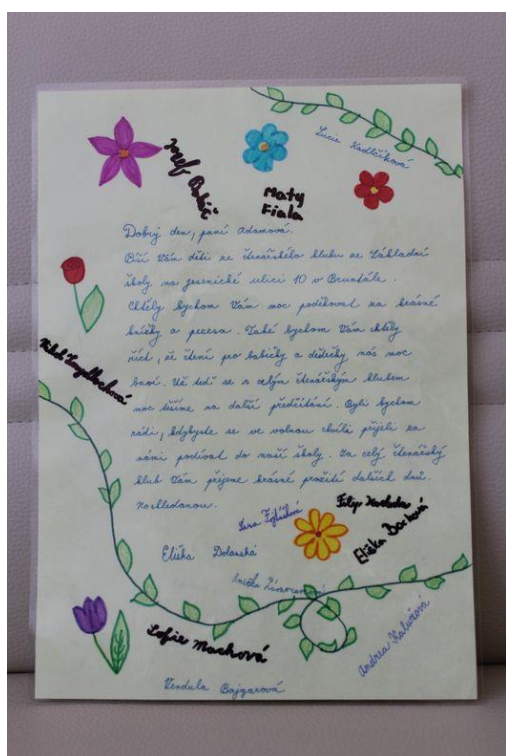 Lucie Kadlčíková
Josef
Maty
Fiala
Dobrý den, paní Adamová.
Píší Vám děti ze čtenářského klubu ze Základní
školy na jesenické ulici 10 v Bruntále.
Chtěly bychom Vám moc poděkovat za krásné
knížky a pexesa. Také bychom Vám chtěly
říct, že čtení pro babičky a dědečky nás moc
baví. Už teď se s celým čtenářským klubem
moc těšíme na další předčítání. Byli bychom
rádi, kdybyste se ve volnou chvíli přijeli za
námi podívat do naší školy. Za celý čtenářský
klub Vám přejeme krásné prožití dalších dnů.
Nashledanou.
Filip
Eliška Bočková
Eliška Dolanská
Anička
Andrea
Sofie Machová
Vendula Bajgarová